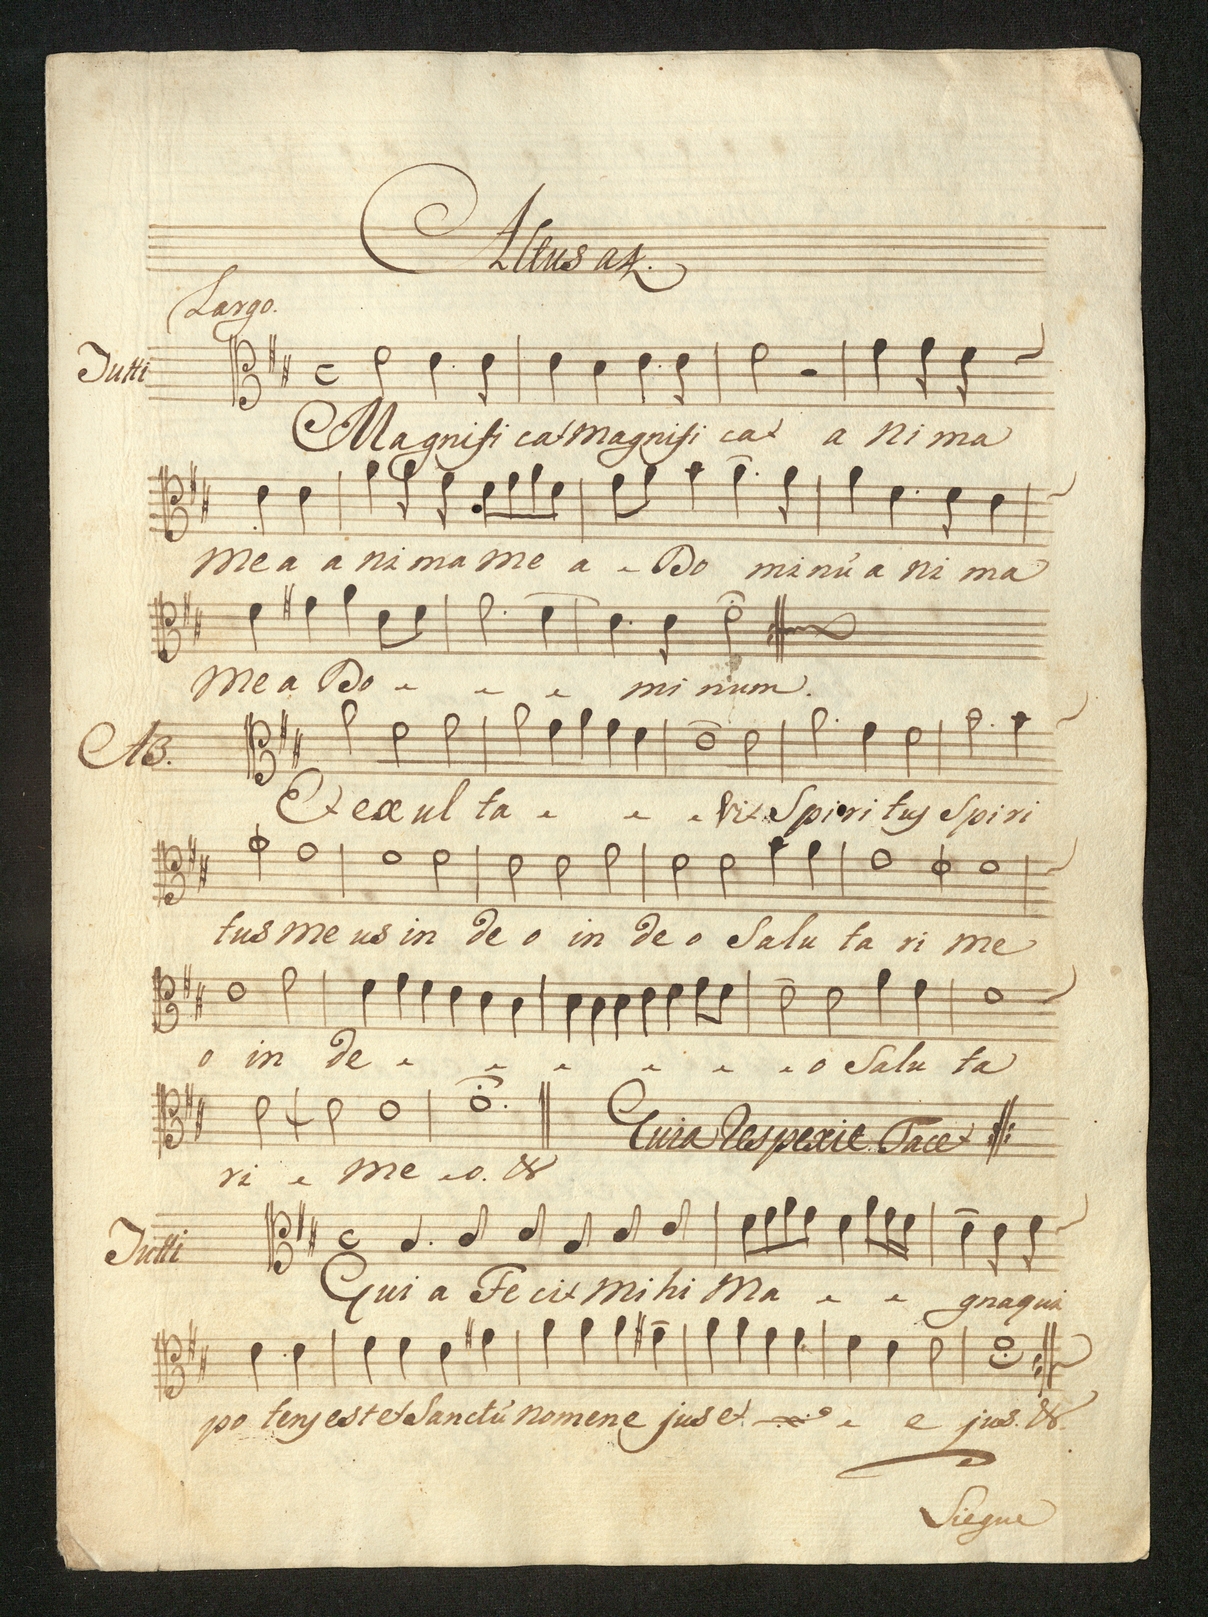 Altus a 4.
Largo.
Tutti
Magnifi cat magnifi cat a ni ma
mea a ni ma me a - Do minũ a ni ma
mea Do - - - mi num.
A 3.
Et ex ul ta - - - vit Spiri tus Spiri
tus me us in de o in de o Salu ta ri me
o in de - - - - - - o Salu ta
ri - me - o. &
Quia Respexit Tacet
Tutti
Qui a Fe cit mihi Ma - - gna qui
po tens est et Sanctũ nomen e jus et - e jus. &.
Siegue